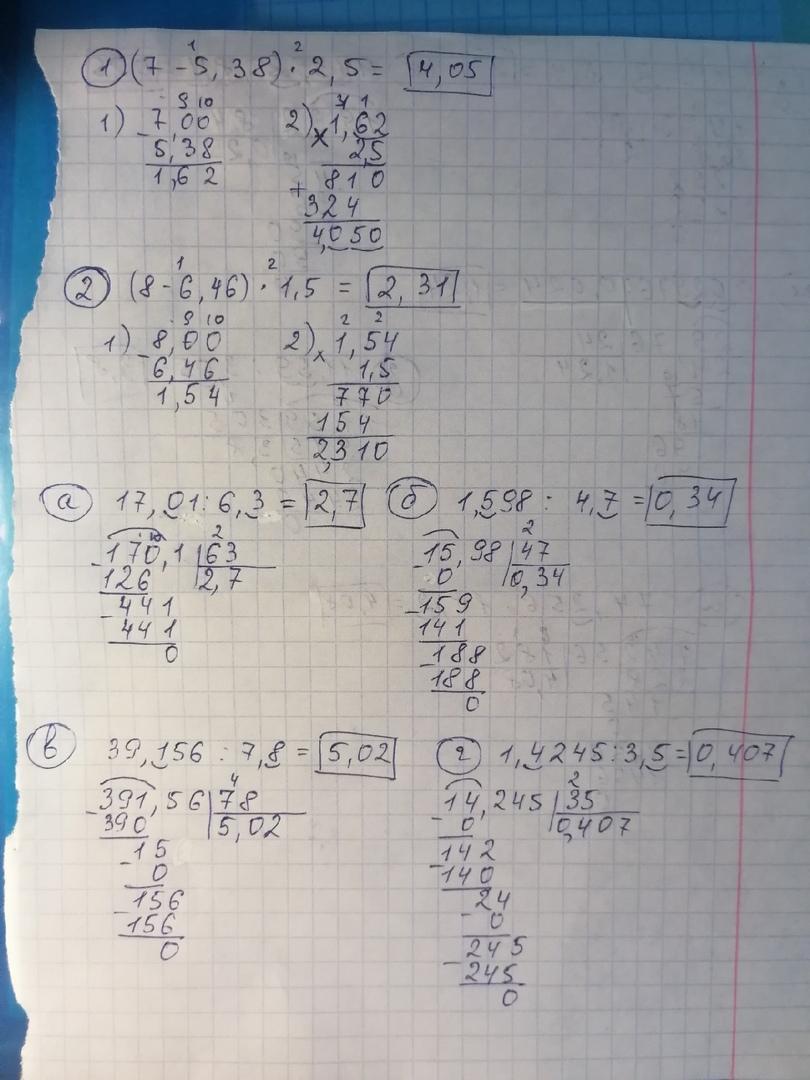 1 (7 - 5,38) · 2,5 = 4,05
1 2
1) 7,00 2) 1,62
9 10
- 5,38 × 2,5
1,62 810
+ 324
4,050
2 (8 - 6,46) · 1,5 = 2,31
1 2
1) 8,00 2) 1,54
9 10 2 2
- 6,46 × 1,5
1,54 770
154
2,310
а 17,01 : 6,3 = 2,7 б 1,598 : 4,7 = 0,34
2 2
170,1 63 15,98 47
- 126 2,7 - 0 0,34
- 441 - 159
441 141
0 - 188
188
0
в 39,156 : 7,8 = 5,02 г 1,4245 : 3,5 = 0,407
4 2
391,56 78 14,245 35
- 390 5,02 - 0 0,407
- 15 - 142
0 140
- 156 - 24
156 0
0 - 245
245
0